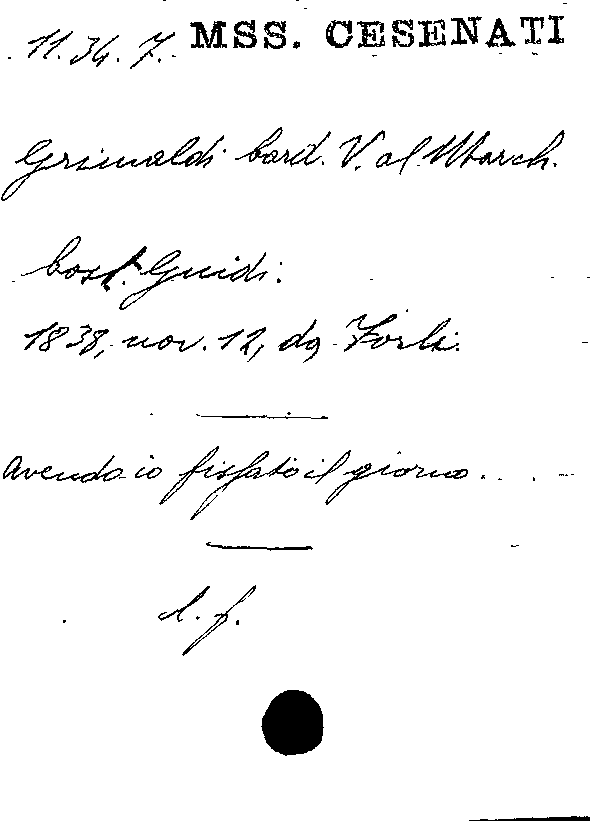 11.34.7. MSS. CESENATI
Grimaldi Card. V. al March.
Cost. Guidi.
1838, nov. 12, da Forlì.
Avendo io fissato il giorno...
l. f.